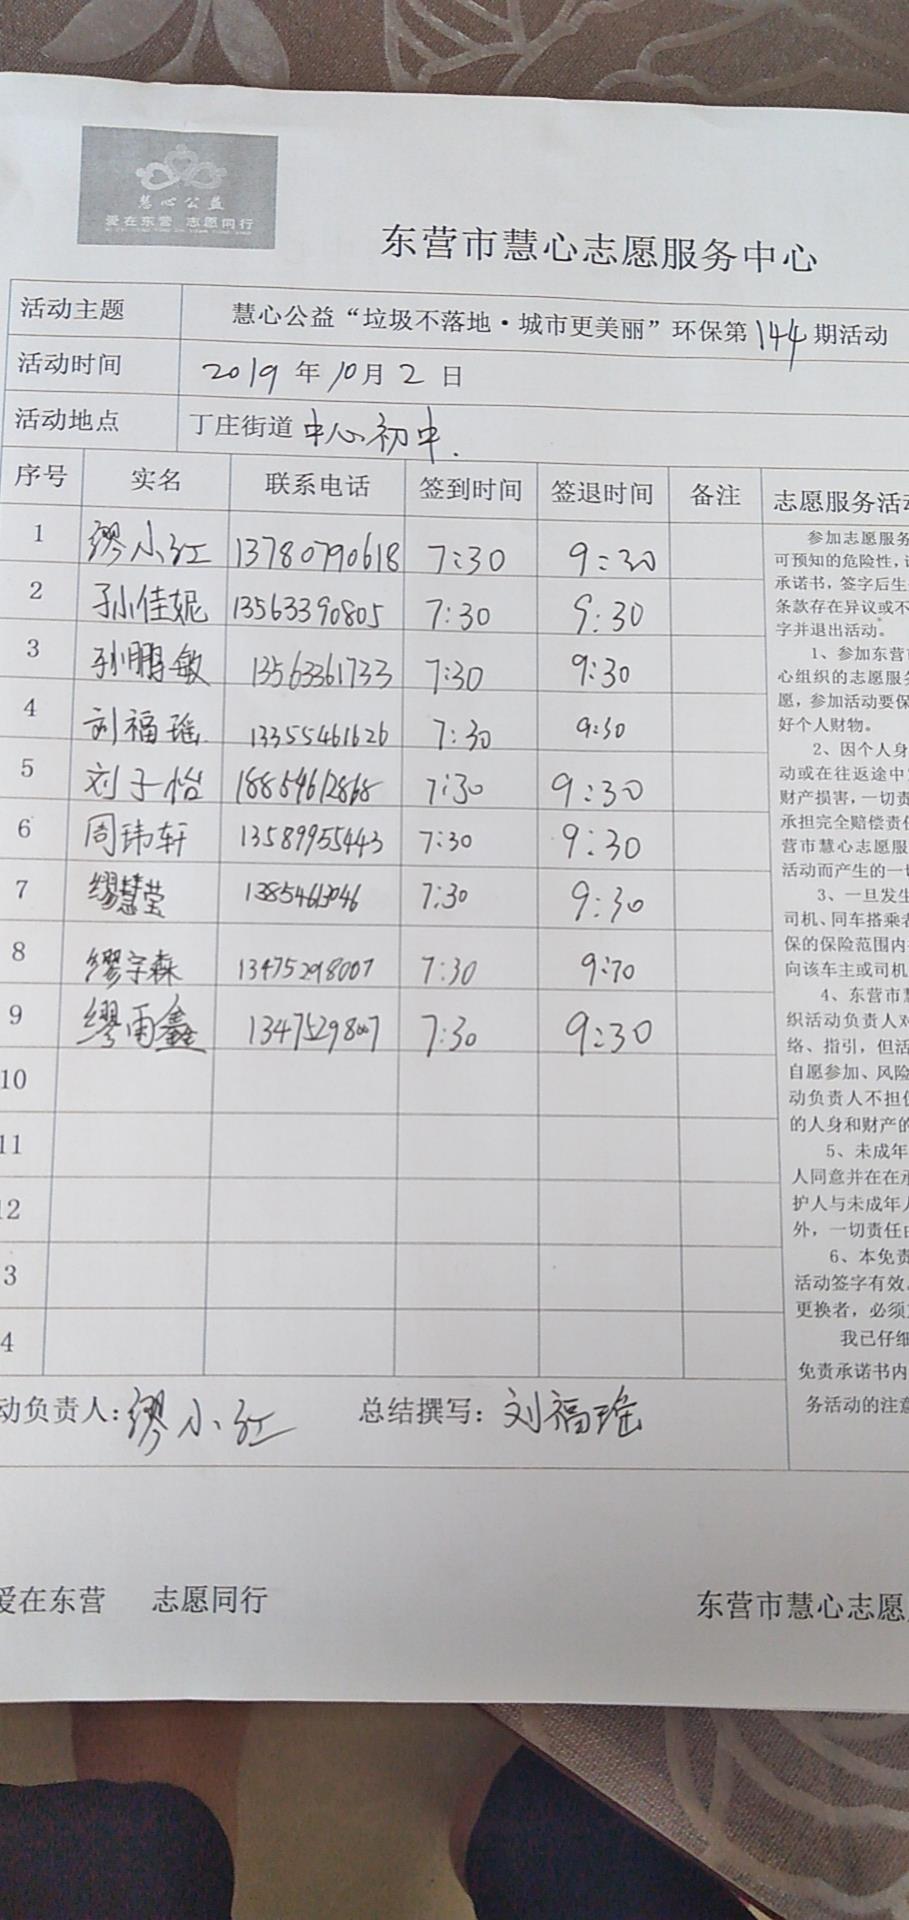 慧心公益
爱在东营 志愿同行
东营市慧心志愿服务中心
活动主题 慧心公益“垃圾不落地·城市更美丽”环保第144期活动
活动时间 2019年10月2日
活动地点 丁庄街道中心初中.
序号 实名 联系电话 签到时间 签退时间 备注
1 缪小红 13780790618 7:30 9:30
2 孙佳妮 13563390805 7:30 9:30
3 孙鹏敏 13563361733 7:30 9:30
4 刘福瑶 13355461626 7:30 9:30
5 刘子怡 18854612868 7:30 9:30
6 周玮轩 13589955443 7:30 9:30
7 缪慧莹 13854613046 7:30 9:30
8 缪宇森 13475298007 7:30 9:30
9 缪雨鑫 13475298007 7:30 9:30
10
11
12
3
4
动负责人:缪小红 总结撰写:刘福瑶
志愿服务活动
参加志愿服务
可预知的危险性,
承诺书,签字后生
条款存在异议或不
字并退出活动。
1、参加东营市
心组织的志愿服务
愿,参加活动要保
好个人财物。
2、因个人身
动或在往返途中
财产损害,一切责
承担完全赔偿责任
营市慧心志愿服
活动而产生的一切
3、一旦发生
司机、同车搭乘者
保的保险范围内
向该车主或司机
4、东营市慧
织活动负责人对
络、指引,但活
自愿参加、风险
动负责人不担任
的人身和财产的
5、未成年
人同意并在在承
护人与未成年人
外,一切责任由
6、本免责
活动签字有效.
更换者,必须
我已仔细
免责承诺书内
务活动的注意
爱在东营 志愿同行
东营市慧心志愿